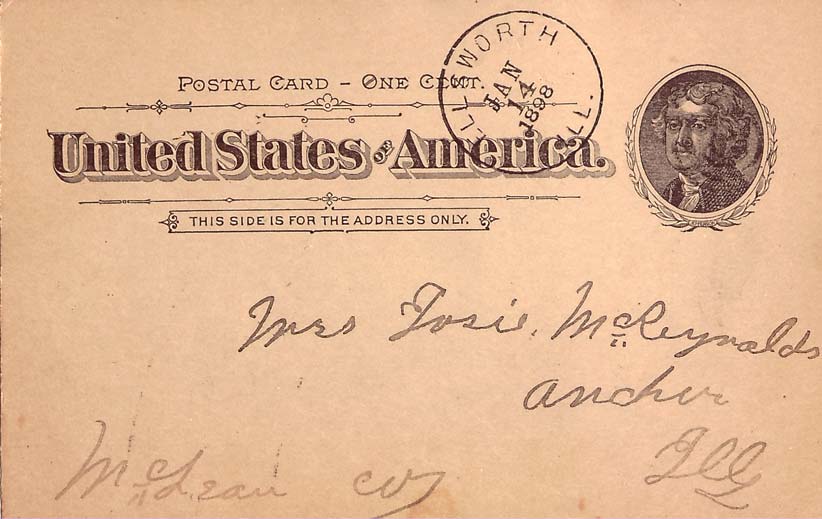 POSTAL CARD – ONE CENT.
ELLSWORTH
JAN
14
1898
ILL.
United States of America.
JEFFERSON
THIS SIDE IS FOR THE ADDRESS ONLY.
Mrs Josie McReynolds
Anchor
Ills
McLean Coy